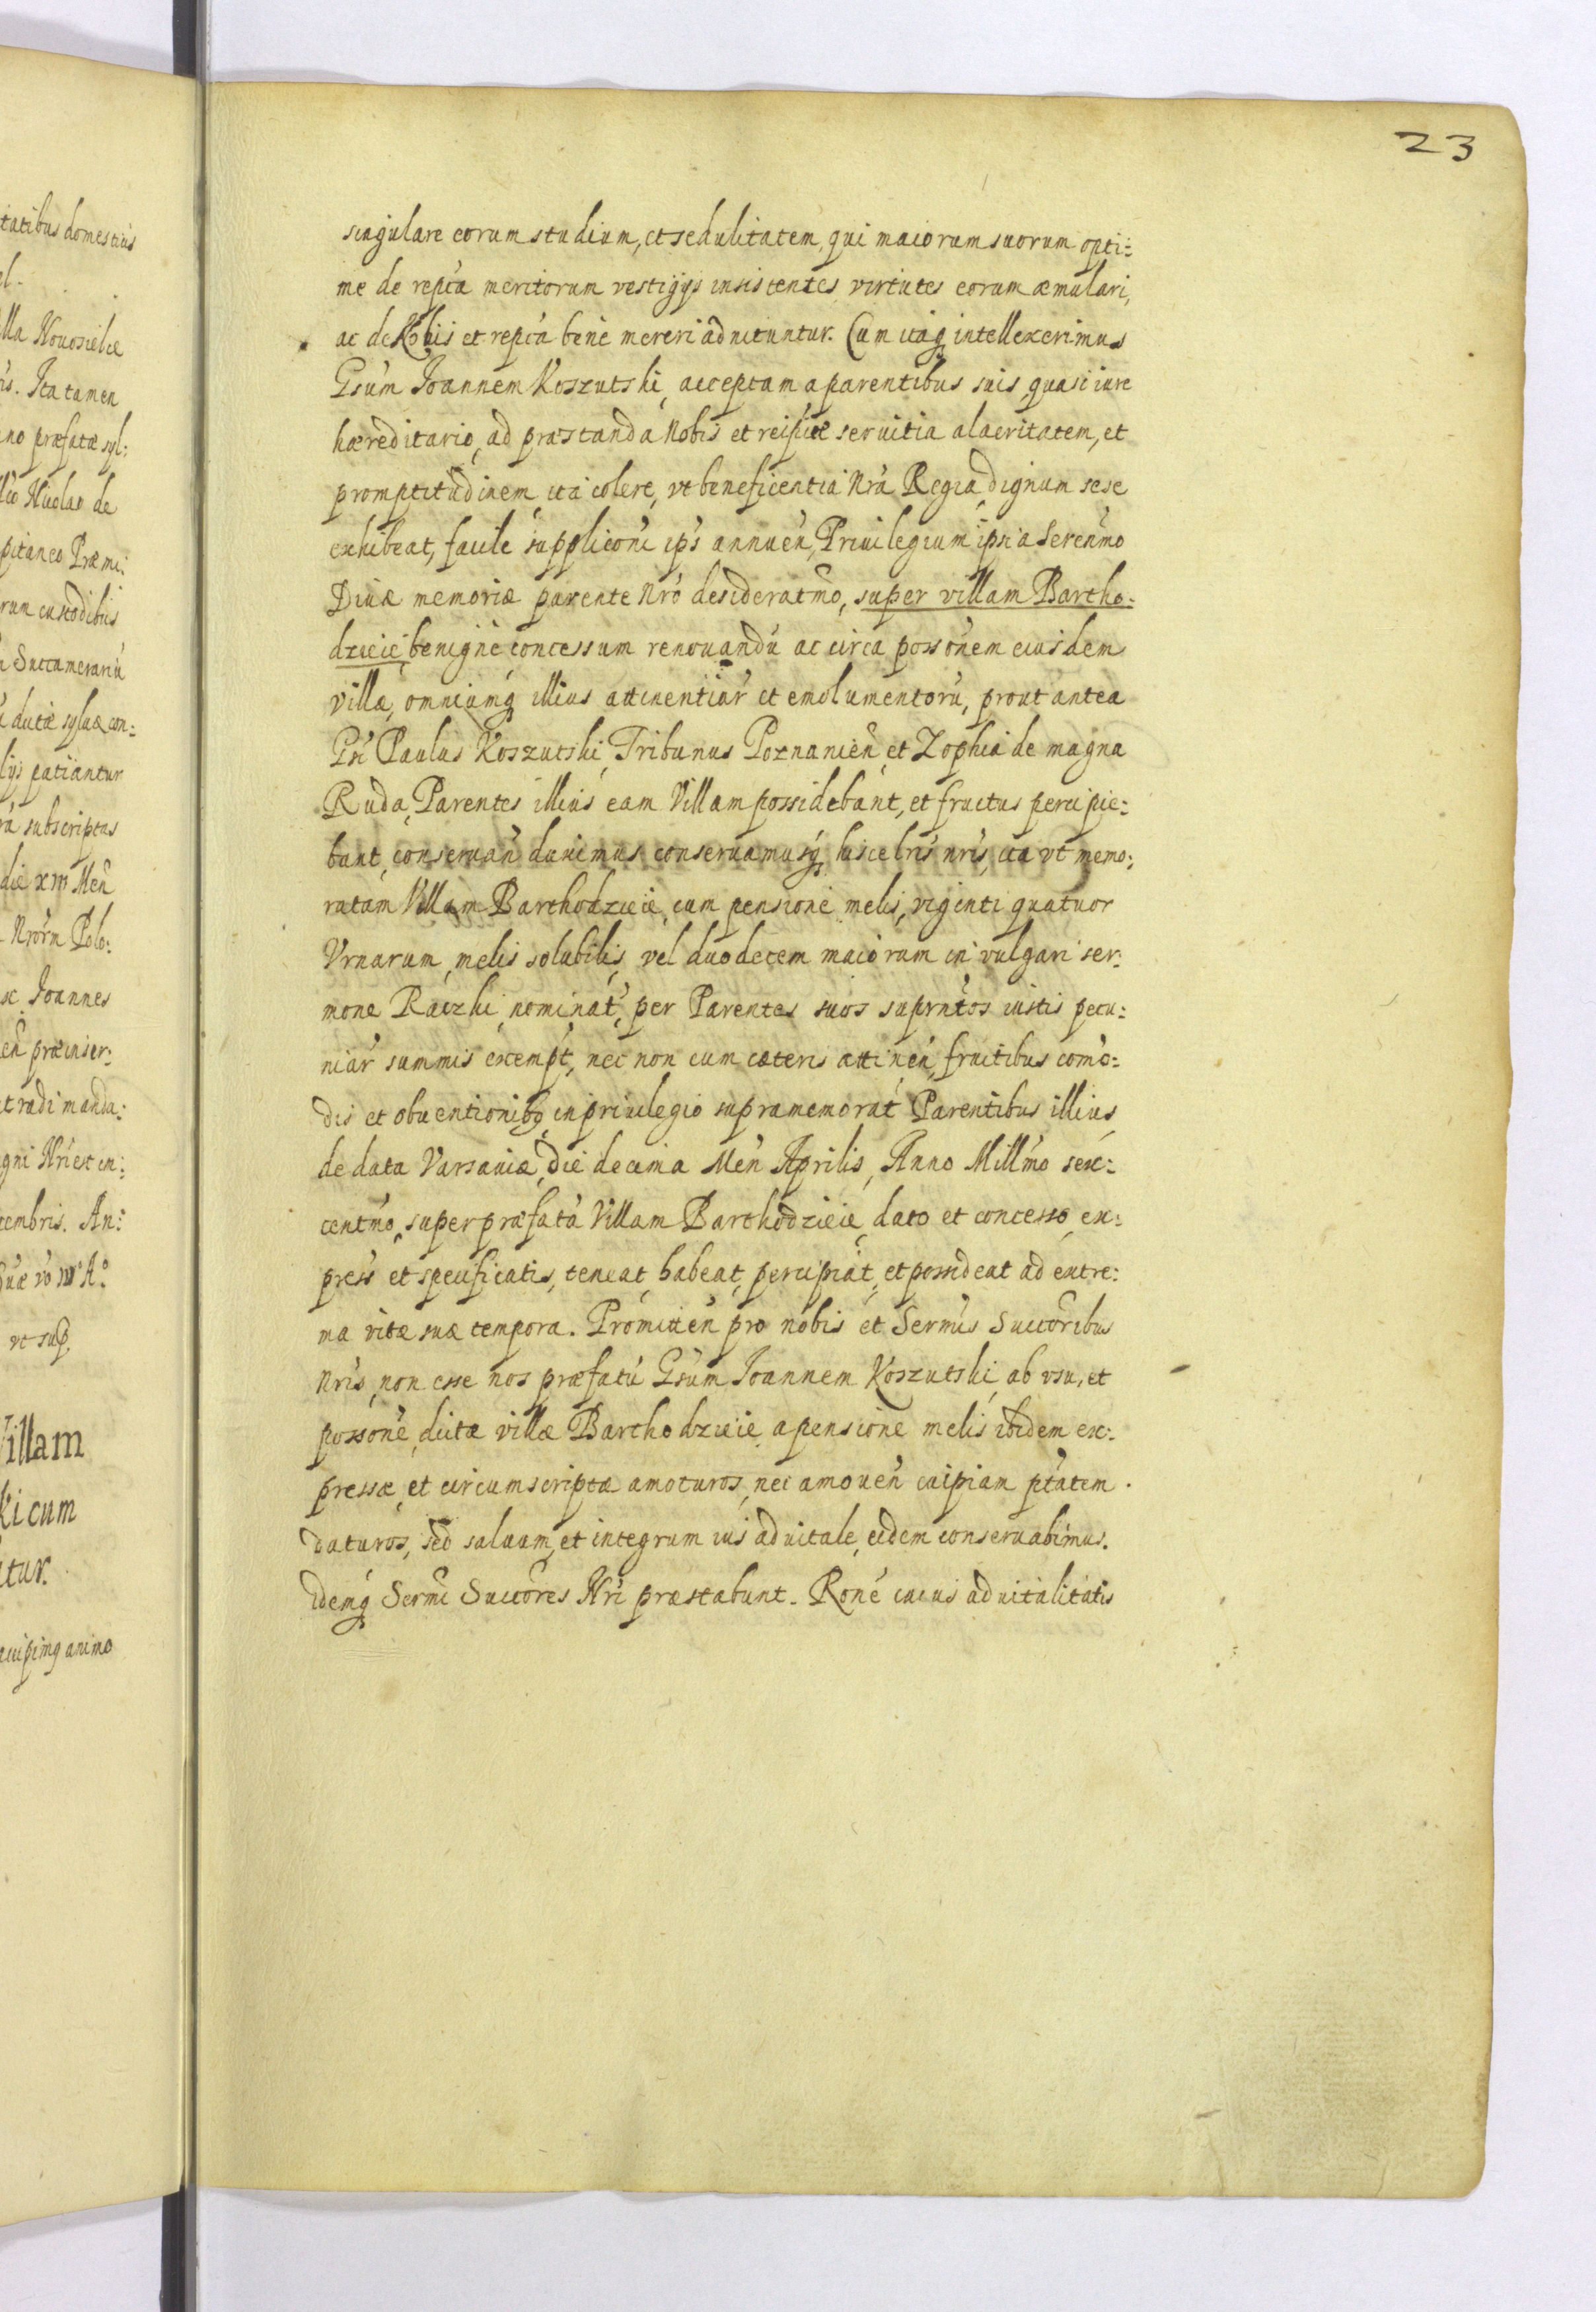 23
singulare eorum studium, et sedulitatem, qui maiorum suorum opti:
me de repca meritorum vestigijs insistentes virtutes eorum æmulari,
ac de Nobis et repca bene mereri adnituntur. Cum itaq intellexerimus
Gsum Joannem Koszutski, acceptam a parentibus suis, quasi iure
hæreditario, ad præstanda Nobis et reipcæ seruitia alacritatem, et
promptitudinem ita colere, vt beneficentia Nra Regia dignum sese
exhibeat, facile supplicõni ips annuen, Priuilegium ipsi a Serenmo
Diuæ memoriæ parente Nro desideratmo, super villam Bartho:
dzieie benigne concessum renouandu ac circa possonem eiusdem
villæ, omniumq illius attinentiar et emolumentoru, prout antea
Gsi Paulus Koszutski, Tribunus Poznanien et Zophia de magna
Ruda, Parentes illius eam Villam possidebant, et fructus percipie:
bant, conseruan duximus conseruamusq hisce lris nris, ita vt memo:
ratam Villam Barthodzieie, cum pensione melis, viginti quatuor
Vrnarum, melis solubilis, vel duodecem maiorum in vulgari ser:
mone Raczki nominat, per Parentes suos suprntos iustis pecu:
niar summis exempt, nec non cum cæteris attinen, fructibus como:
dis et obuentionibq in priuilegio supramemorat Parentibus illius
de data Varsauiæ, die decima Men Aprilis, Anno Millmo sex:
centmo, super præfata Villam Barthodzieie, dato et concesso, ex:
press et specificatis, teneat, habeat, percipiat, et possideat ad extre:
ma vitæ suæ tempora. Promitten pro nobis et Sermis Succoribus
Nris, non esse nos præfatu Gsum Joannem Koszutski, ab vsu, et
possone, dictæ villæ Barthodzieie, a pensione melis ibidem ex:
pressæ, et circumscriptæ amoturos, nec amouen cuipiam ptatem
daturos, sed saluum, et integrum ius aduitale, eidem conseruabimus.
idemq Sermi Succores Nri præstabunt. Rone cuius aduitalitatis